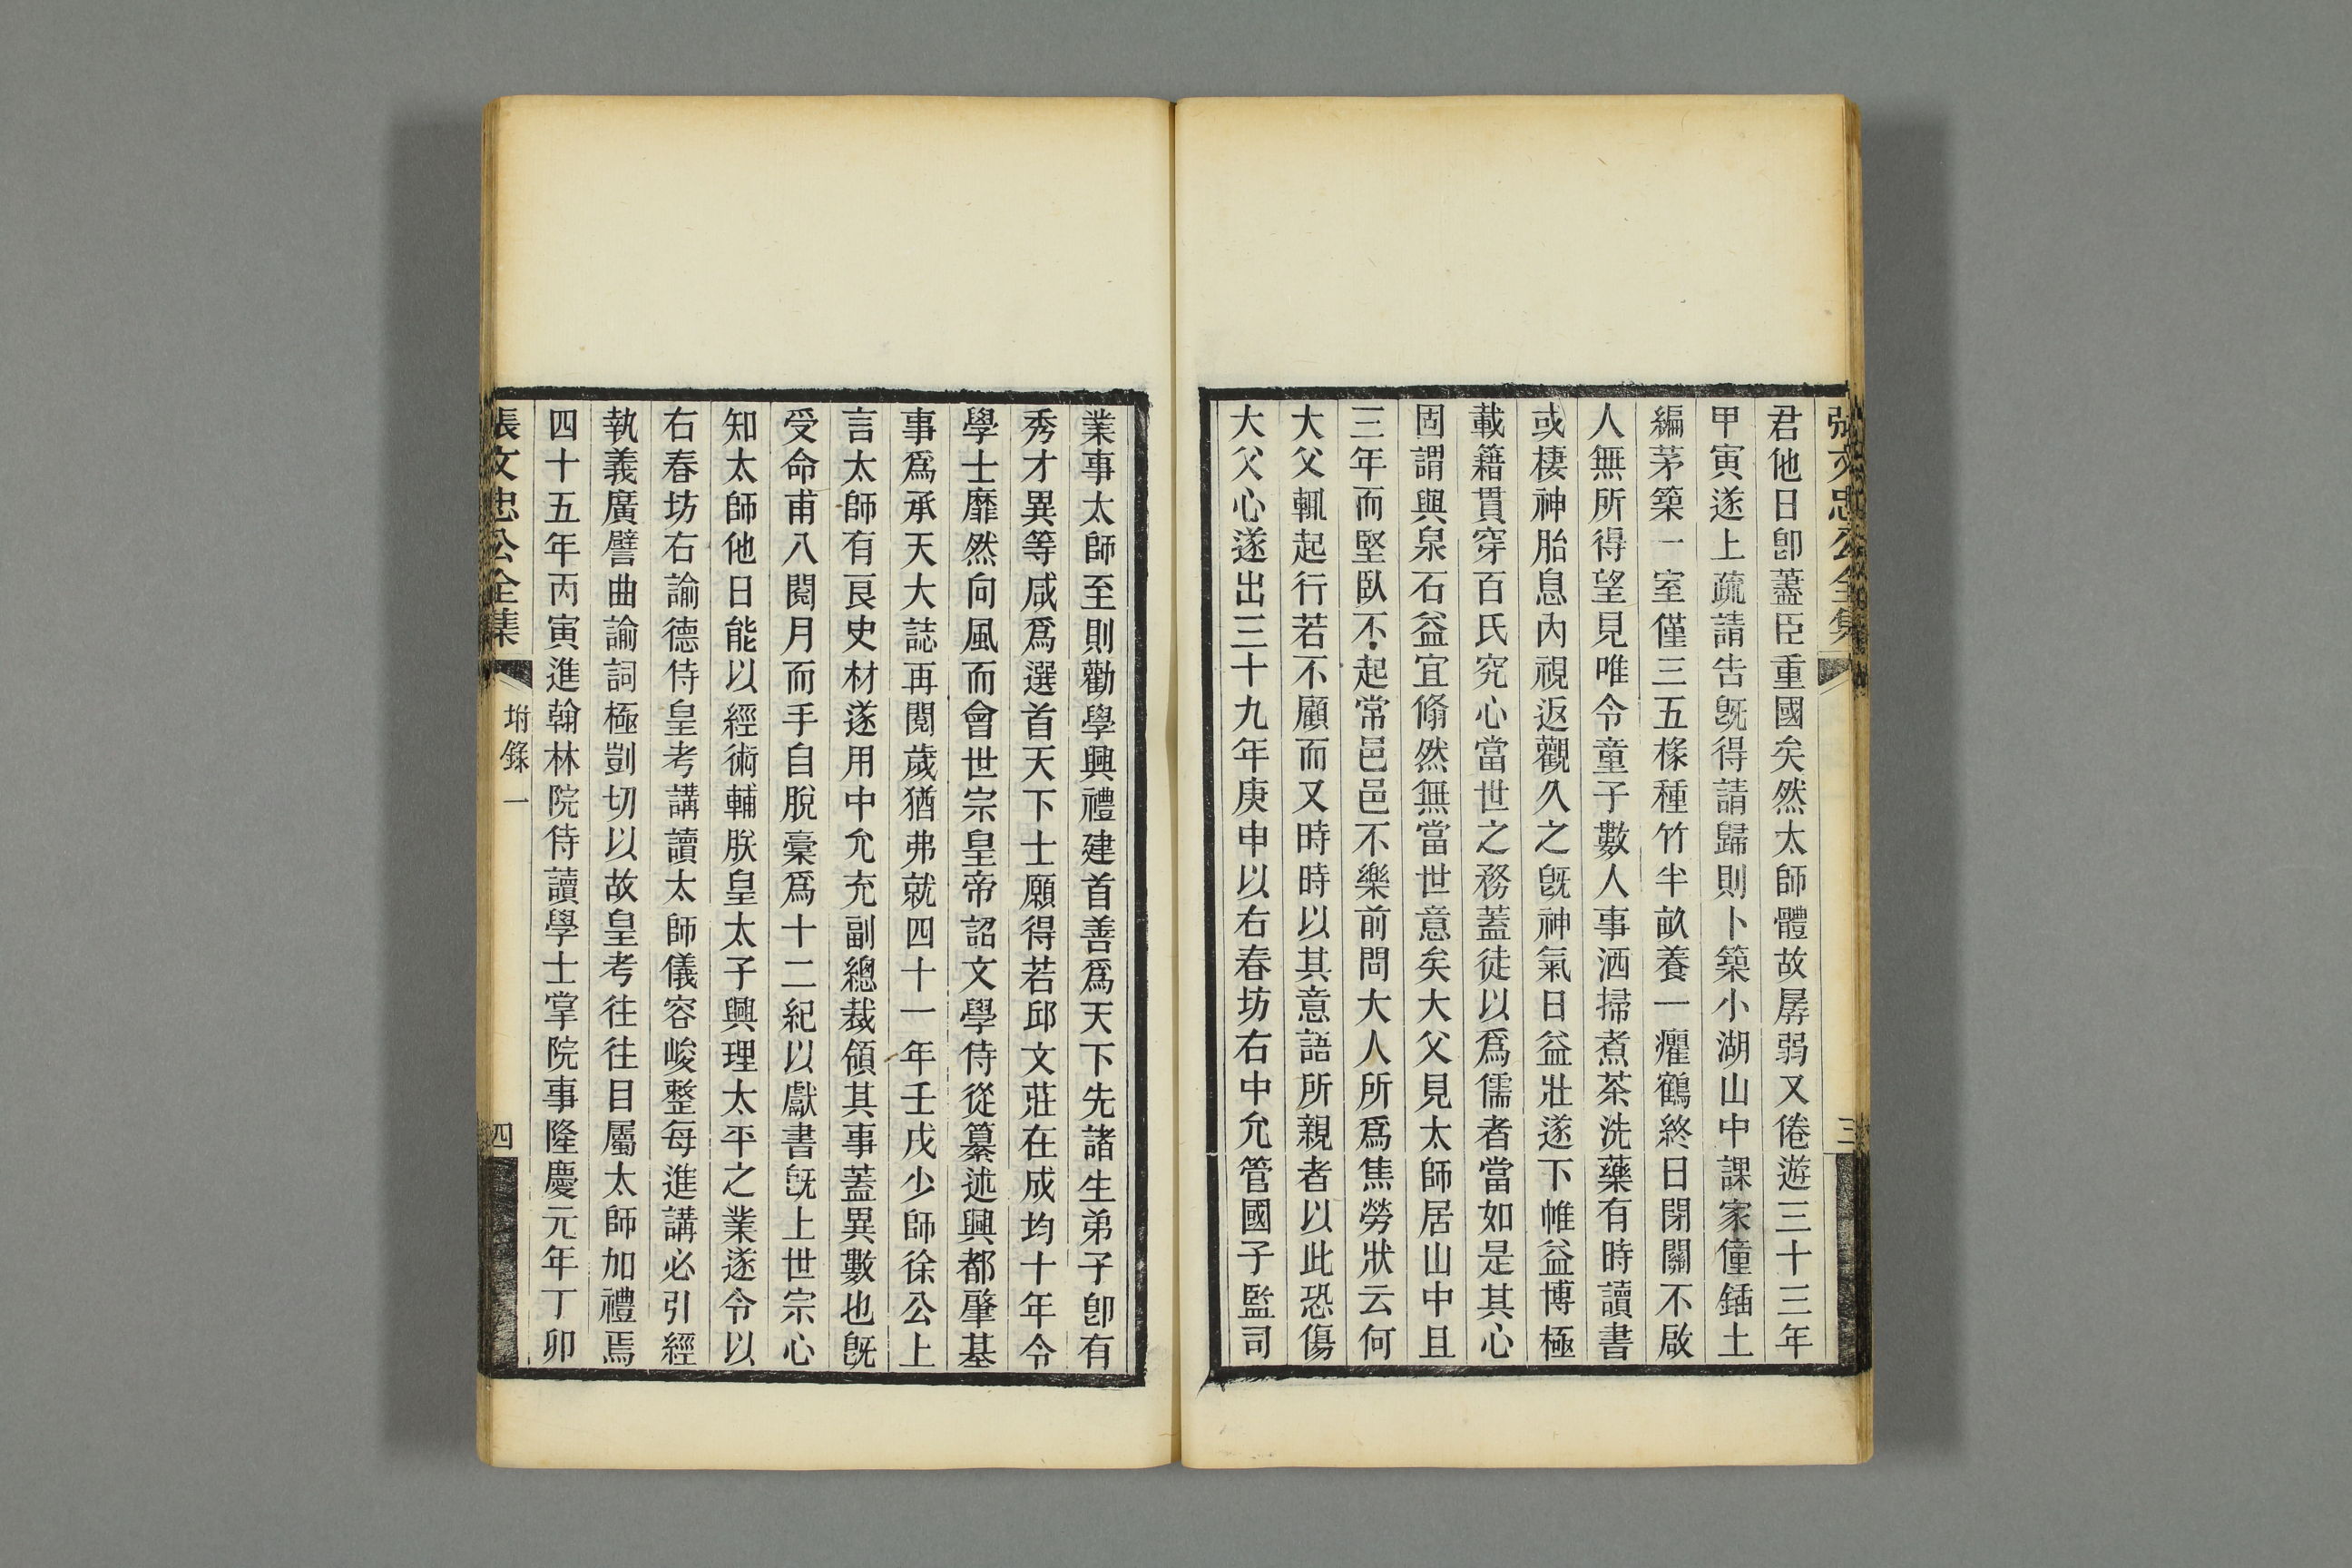 張文忠公全集
三
君他日卽藎臣重國矣然太師體故孱弱又倦遊三十三年
甲寅遂上疏請告旣得請歸則卜築小湖山中課家僮鍤土
編茅築一室僅三五椽種竹半畝養一癯鶴終日閉關不啟
人無所得望見唯令童子數人事洒掃煮茶洗藥有時讀書
或棲神胎息內視返觀久之旣神氣日益壯遂下帷益博極
載籍貫穿百氏究心當世之務蓋徒以爲儒者當如是其心
固謂與泉石益宜翛然無當世意矣大父見太師居山中且
三年而堅臥不起常邑邑不樂前問大人所爲焦勞狀云何
大父輒起行若不顧而又時時以其意語所親者以此恐傷
大父心遂出三十九年庚申以右春坊右中允管國子監司
業事太師至則勸學興禮建首善爲天下先諸生弟子卽有
秀才異等咸爲選首天下士願得若邱文莊在成均十年令
學士靡然向風而會世宗皇帝詔文學侍從纂述興都肇基
事爲承天大誌再閱歲猶弗就四十一年壬戌少師徐公上
言太師有良史材遂用中允充副總裁領其事蓋異數也旣
受命甫八閱月而手自脫稾爲十二紀以獻書旣上世宗心
知太師他日能以經術輔朕皇太子興理太平之業遂令以
右春坊右諭德侍皇考講讀太師儀容峻整每進講必引經
執義廣譬曲諭詞極剴切以故皇考往往目屬太師加禮焉
四十五年丙寅進翰林院侍讀學士掌院事隆慶元年丁卯
張文忠公全集
坿錄一
四